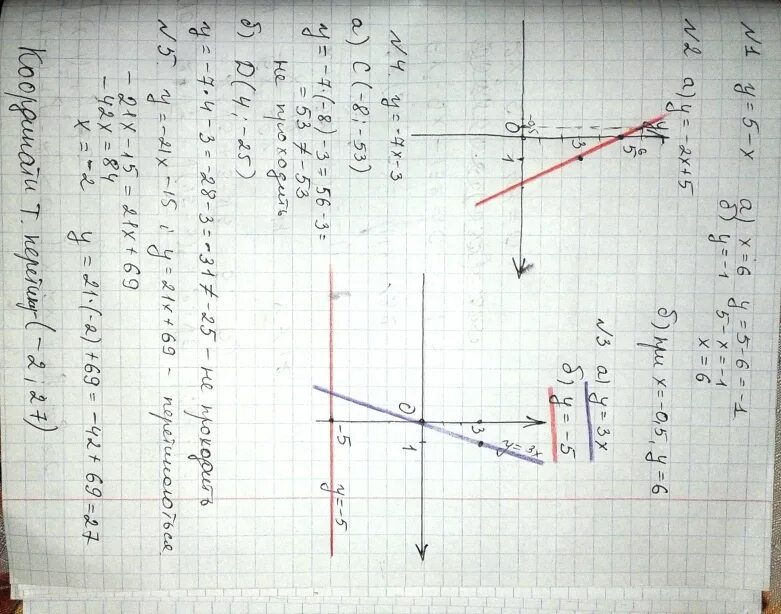 N1 y = 5 - x
а) x = 6 y = 5 - 6 = -1
б) y = -1 5 - x = -1
x = 6
N2 а) y = -2x + 5
б) при x = -0,5, y = 6
y
6
5
3
-0,5
0
1
N3 а) y = 3x
б) y = -5
3
y = 3x
0
1
-5
y = -5
N4. y = -7x - 3
а) C (-8; -53)
y = -7·(-8) - 3 = 56 - 3 =
= 53 ≠ -53
не проходить
б) D (4; -25)
y = -7·4 - 3 = 28 - 3 = -31 ≠ -25 - не проходить
N5. y = -21x - 15 і y = 21x + 69 - перетинаються
-21x - 15 = 21x + 69
-42x = 84
x = -2 y = 21·(-2) + 69 = -42 + 69 = 27
Координати т. перетину (-2; 27)